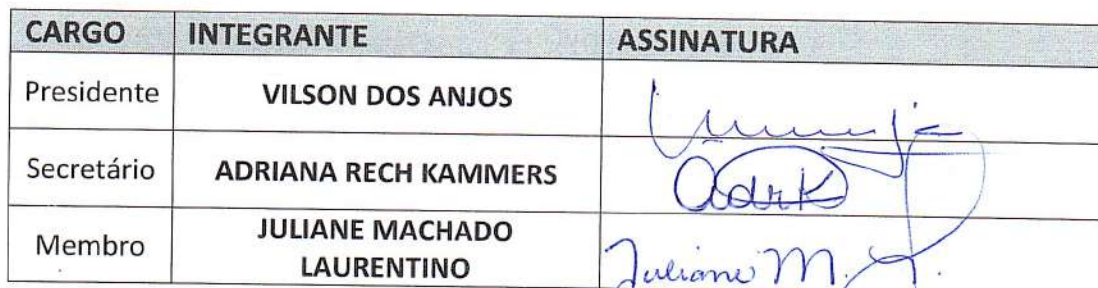 CARGO INTEGRANTE ASSINATURA
Presidente VILSON DOS ANJOS
Secretário ADRIANA RECH KAMMERS AdrK
Membro JULIANE MACHADO
LAURENTINO Juliane M. L.